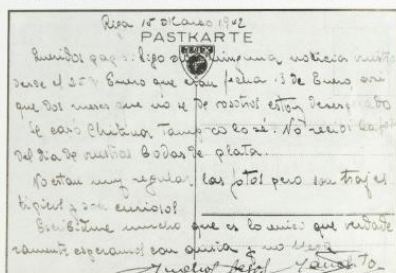 Riga 15 Marzo 1942
PASTKARTE
Queridos papas: Sigo sin ninguna noticia vuestra
desde el 25 Enero que eran fecha 13 de Enero, asi
que dos meses que no se de vosotros estoy desesperado
Se casó Chutina, Tampoco lo sé. No recibi la foto
del dia de vuestras Bodas de plata.
No estan muy regular las fotos pero son trajes
tipicos y son curiosos
Escibitme mucho que es lo unico que verdade
ramente esperamos con ansia y no llega
Muchos besos